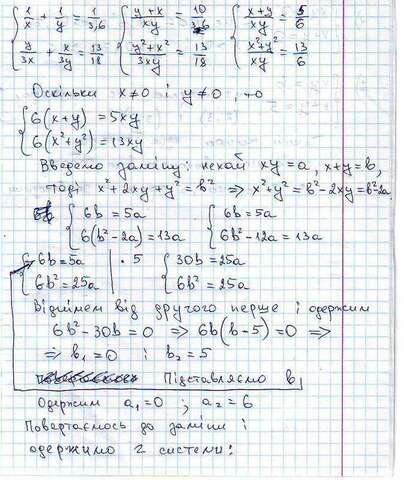 { 1/x + 1/y = 1/3,6 { (y+x)/xy = 10/36 { (x+y)/xy = 5/6
y/3x + x/3y = 13/18 (y²+x²)/3xy = 13/18 (x²+y²)/xy = 13/6
Оскільки x≠0 і y≠0, то
{ 6(x+y) = 5xy
6(x²+y²) = 13xy
Введемо заміну: нехай xy=a, x+y=b,
тоді x²+2xy+y²=b² ⇒ x²+y²=b²-2xy=b²-2a
{ 6b = 5a { 6b = 5a
6(b²-2a) = 13a 6b²-12a = 13a
{ 6b = 5a | · 5 { 30b = 25a
6b² = 25a 6b² = 25a
Віднімем від другого перше і одержим
6b²-30b = 0 ⇒ 6b(b-5) = 0 ⇒
⇒ b₁ = 0 і b₂ = 5
Підставляємо b₁
Одержим a₁=0 ; a₂=6
Повертаємось до заміни і
одержимо 2 системи: